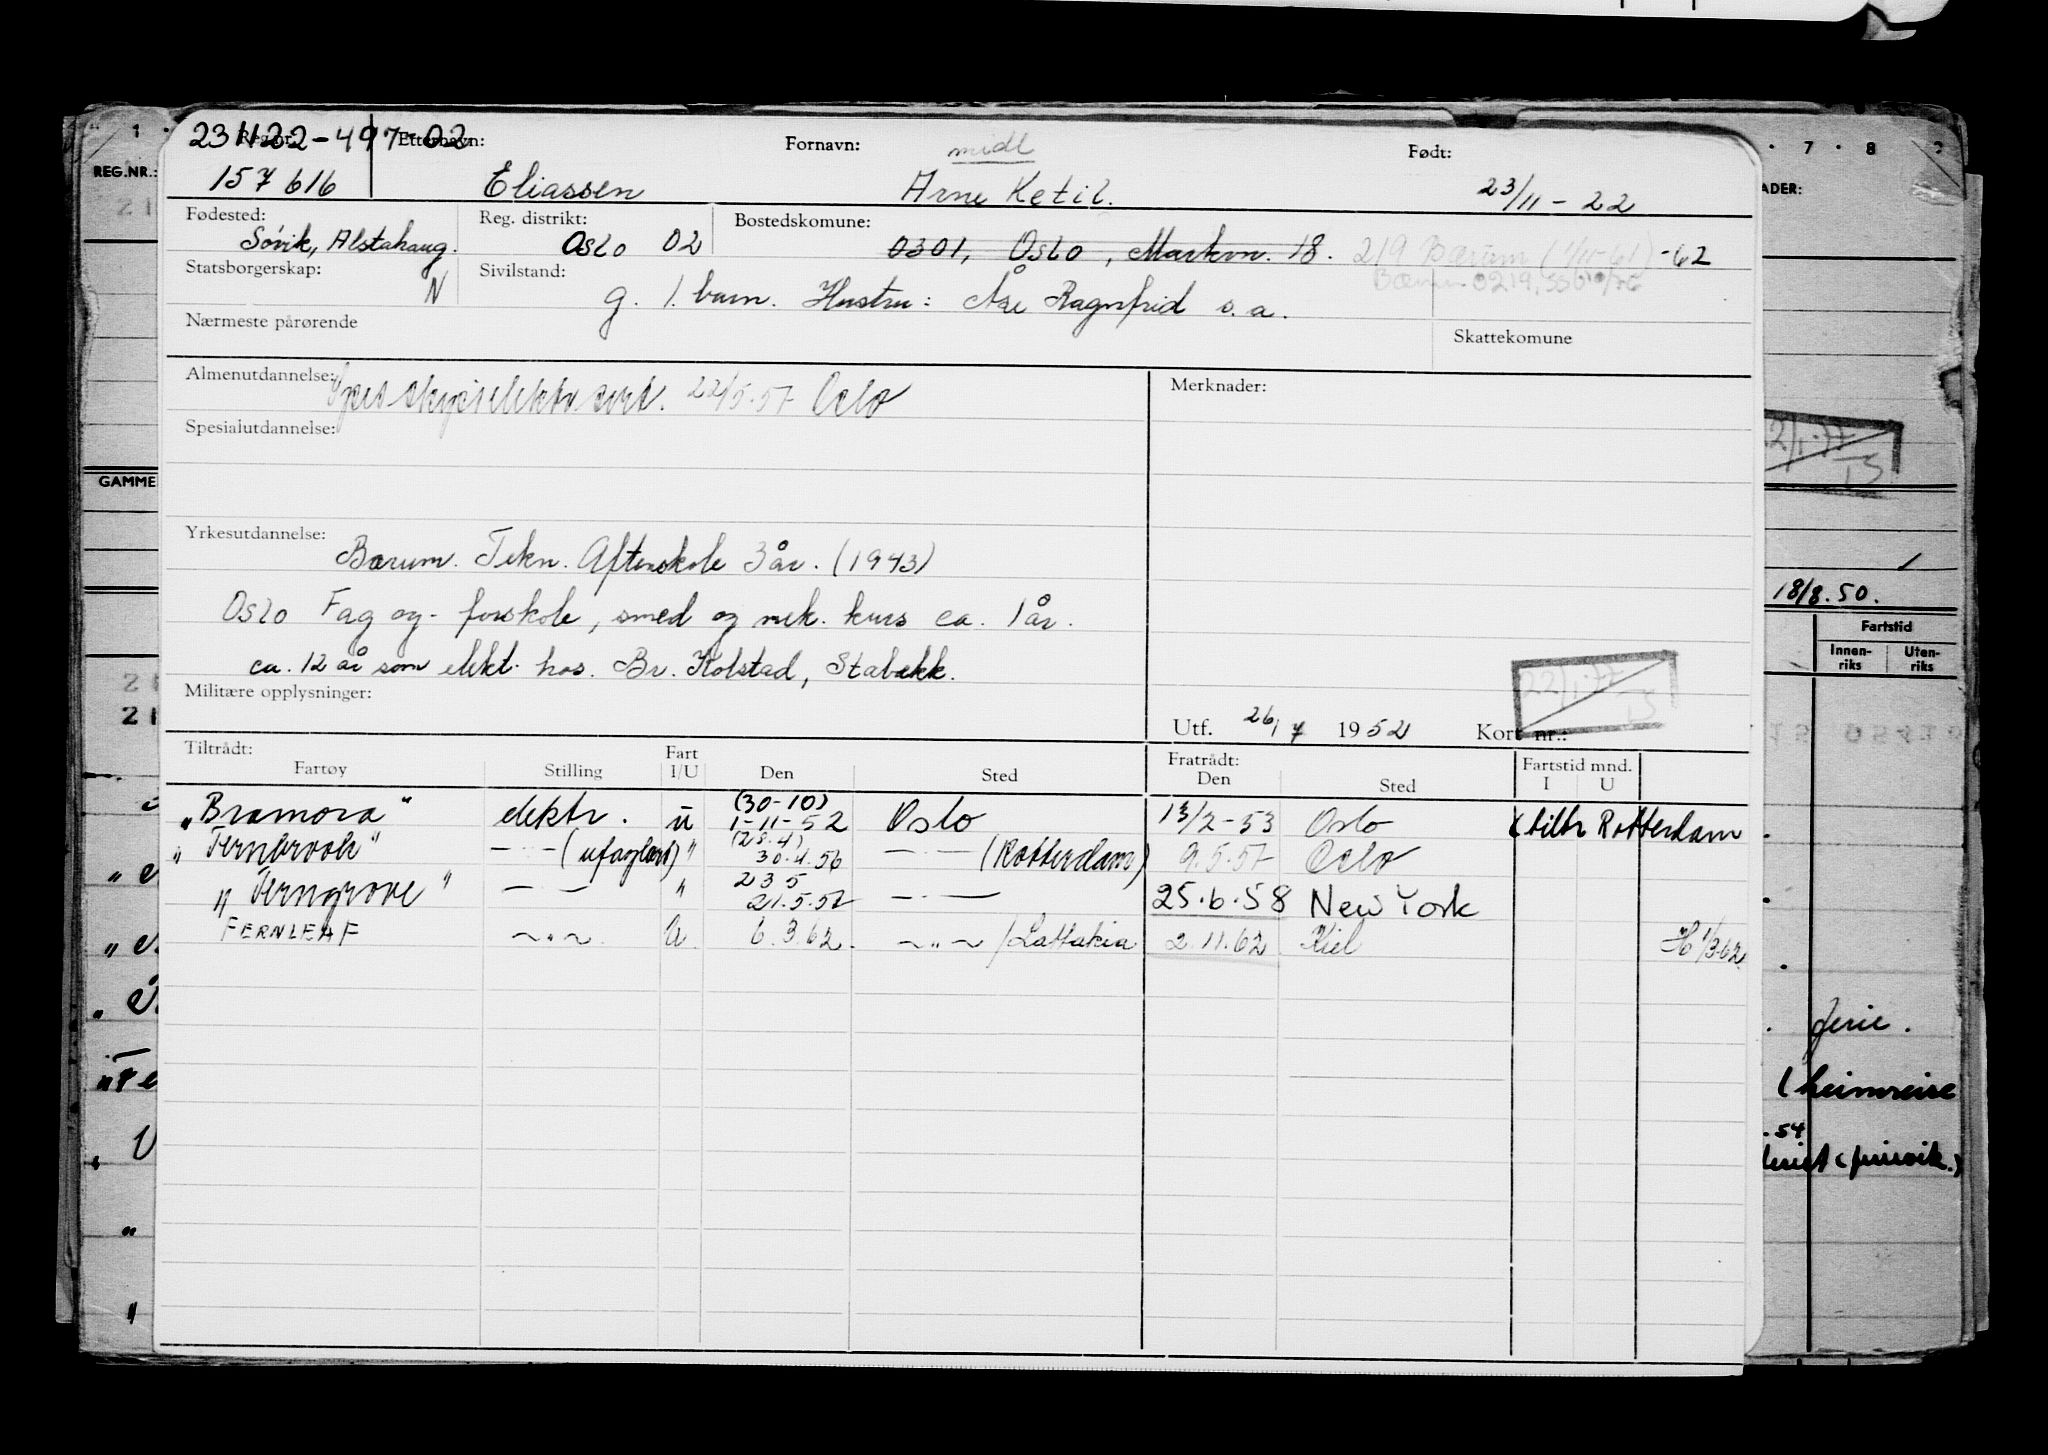 231122-497-02
Reg.nr. Etternavn: Fornavn: midl Født:
157616 Eliassen Arne Ketil. 23/11-22
Fødested: Reg. distrikt: Bostedskomune:
Søvik, Alstahaug. Oslo 02 0301, Oslo, Markvn. 18. 219 Bærum (1/11-61) -62
Statsborgerskap: N Sivilstand: Bærum 0219
g. 1. barn. Hustru: Åse Ragnfrid s. a.
Nærmeste pårørende Skattekomune
Almenutdannelse: skipselektr. sert. 22/5.57 Oslo Merknader:
Spesialutdannelse:
Yrkesutdannelse:
Bærum. Tekn. Aftenskole 3 år. (1943)
Oslo Fag og- forskole, smed og mek. kurs ca. 1 år.
ca. 12 år som elekt. hos. Br. Kolstad, Stabekk.
Militære opplysninger:
22/1.77
TS
Utf. 26/7 1952 Kort nr.:
Tiltrådt: Fart Fratrådt: Fartstid mnd.
Fartøy Stilling I/U Den Sted Den Sted I U
"Bramora" elektr. u (30-10) 1-11-52 Oslo 13/2-53 Oslo (tiltr Rotterdam
"Fernbrook" —"— (ufaglært) " (28.4) 30.4.56 —"— (Rotterdam) 9.5.57 Oslo
"Ferngrove" —"— " 23 5 21.5.57 —"— 25.6.58 New York
FERNLEAF ~"~. U. 6.3.62. ~"~ /Lattakia 2.11.62 Kiel H 1/3.62
1
REG.NR.:
GAMME
7 . 8
ADER:
22/1.77
TS
18/8.50.
Fartstid
Innen-riks Uten-riks
ferie.
(heimreise
.54